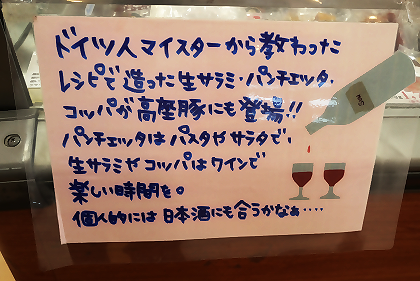 ドイツ人マイスターから教わった
レシピで造った生サラミ・パンチェッタ・
コッパが高座豚にも登場!!
パンチェッタはパスタやサラダで、
生サラミやコッパはワインで
楽しい時間を。
個人的には日本酒にも合うかなぁ‥‥